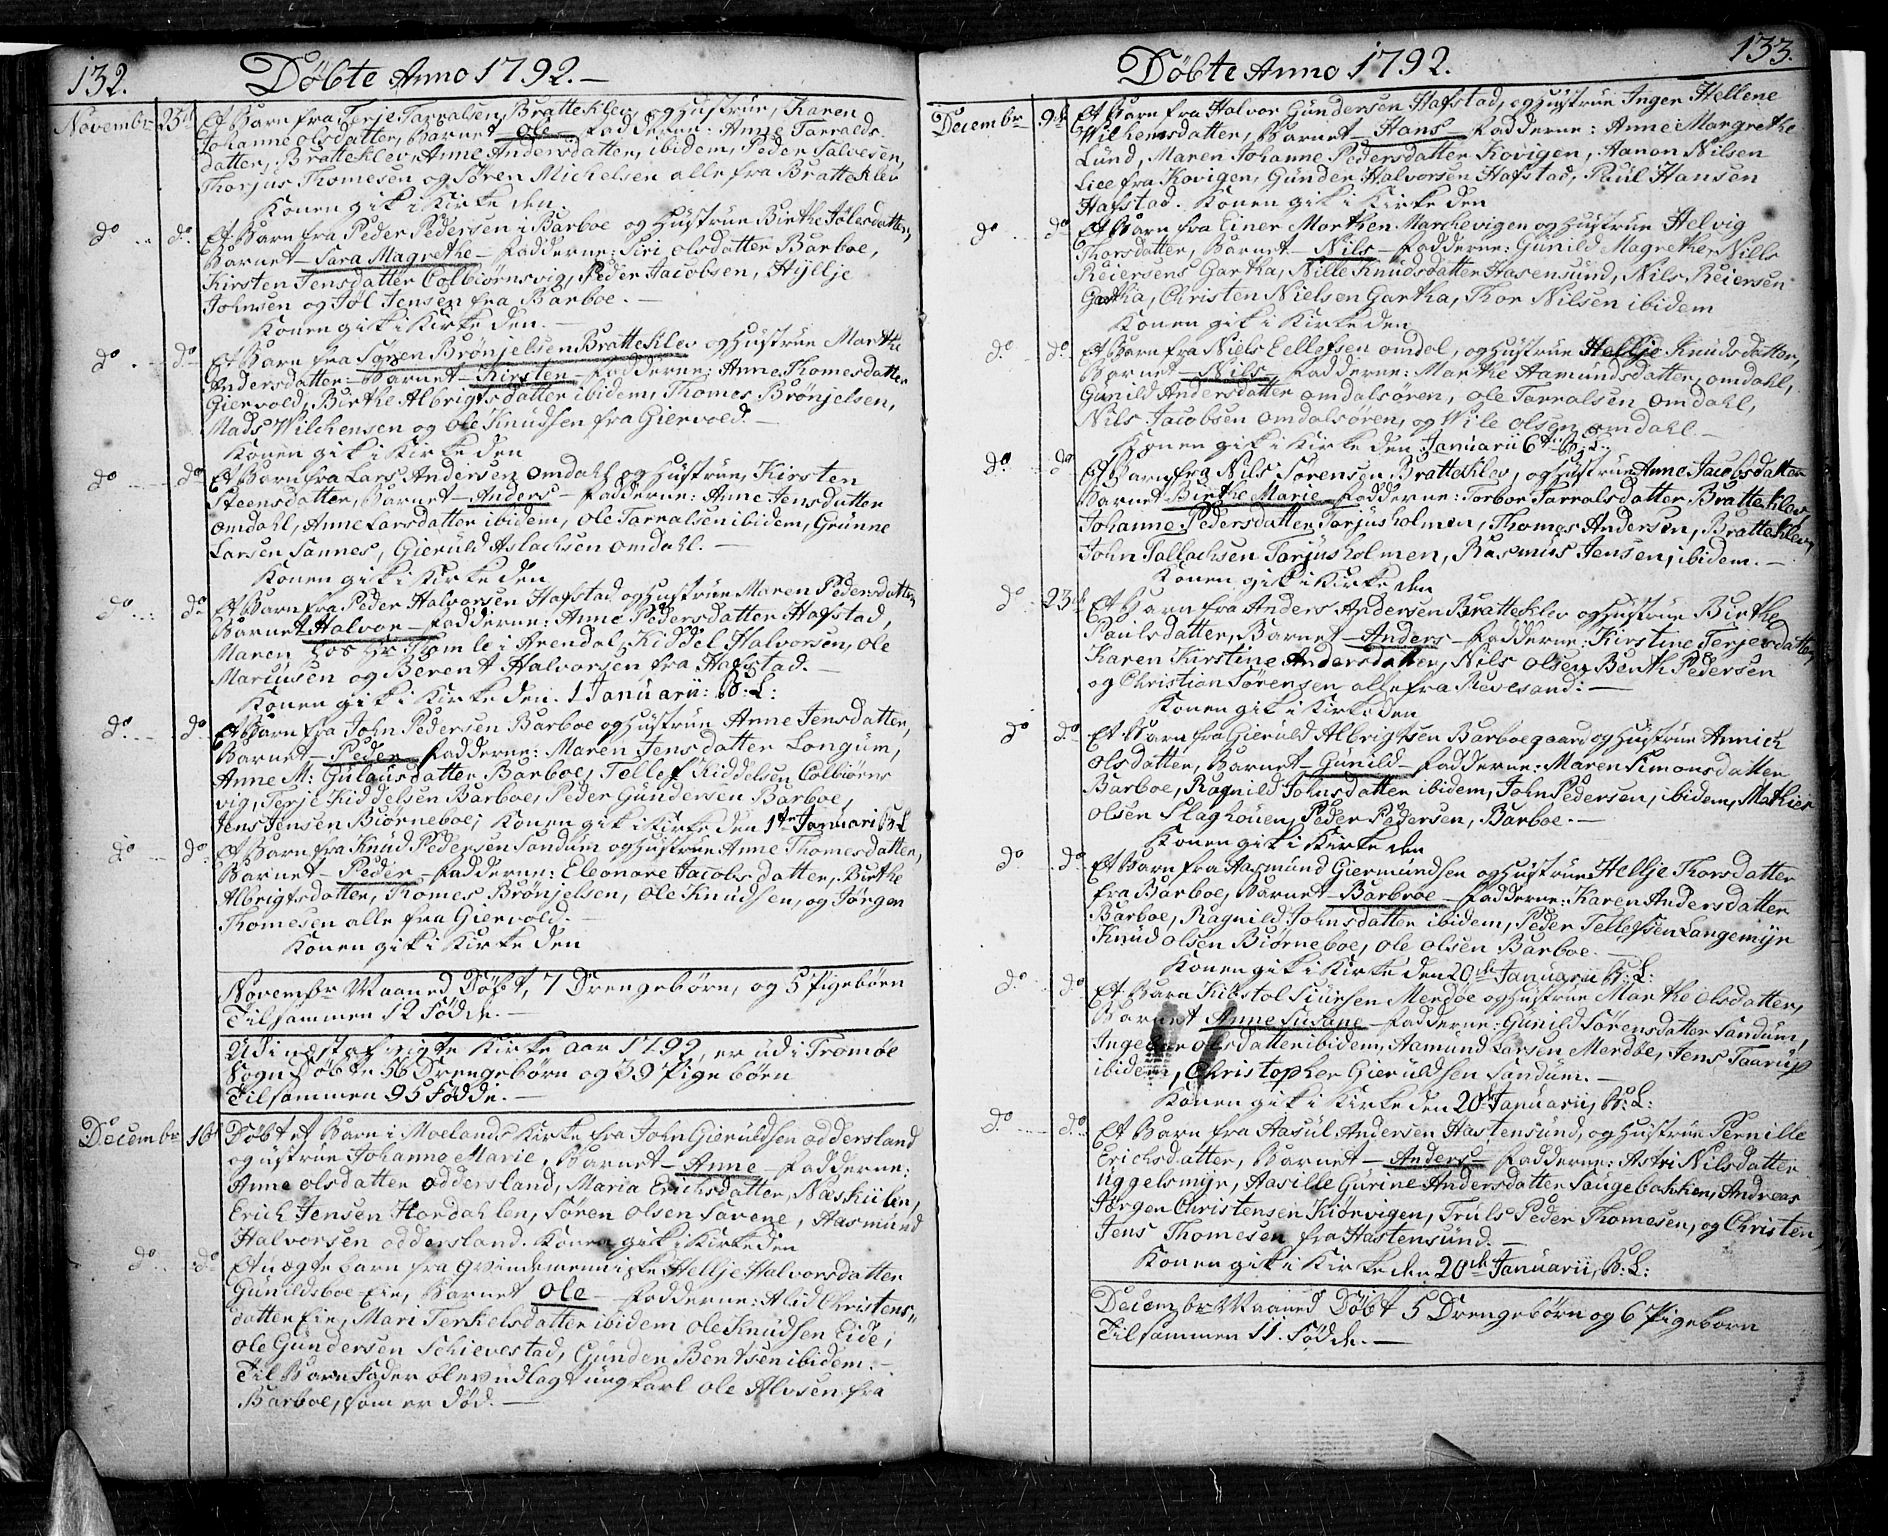 132. Døbte Anno 1792.—
Novembr 25de Et Barn fra Terje Tarralsen, Bratteklev, og Hustrue, Karen
Johanne Olsdatter, Barnet — Ole — Fadderne: Anne Tarralds-
datter, Bratteklev, Anne Andersdatter, ibidem, Peder Salvesen,
Thorjus Thomesen og Søren Michelsen alle fra Bratteklev
Konen gik i Kirke den.
do do Et Barn fra Peder Pedersen i Barboe og Hustrue Birthe Jølesdatter,
Barnet — Sara Magrethe — Fadderne: Siri Olsdatter Barboe,
Kirsten Jensdatter Colbiørnsvig, Peder Jacobsen, Hyllje
Johnsen og Jøl Jensen fra Barboe.—
Konen gik i Kirke den.—
do do Et Barn fra Søren Brønjelsen Bratteklev og Hustrue Marthe
Andersdatter — Barnet — Kirsten — Fadderne: Anne Thomesdatter
Giervold, Birthe Albrigtsdatter ibidem, Thomes Brønjelsen,
Mads Wilchensen og Ole Knudsen fra Giervold.—
Konen gik i Kirke den
do do Et Barn fra Lars Andersen Omdahl og Hustrue, Kirsten
Steensdatter, Barnet — Anders — Fadderne: Anne Jensdatter
Omdahl, Anne Larsdatter ibidem, Ole Tarralsen ibidem, Grunne
Larsen Sannes, Gieruld Aslachsen Omdahl.—
Konen gik i Kirke den
do do Et Barn fra Peder Halvorsen Hafstad og Hustrue Maren Pedersdatter
Barnet Halvor — Fadderne: Anne Pedersdatter Hafstad,
Maren hos Hr Thomle i Arendal, Kiddel Halvorsen, Ole
Mariusen og Berent Halvorsen fra Hafstad.—
Konen gik i Kirke den. 1 Januarii: B: L:
do do Et Barn fra John Pedersen Barboe og Hustrue Anne Jensdatter,
Barnet — Peder — Fadderne: Maren Jensdatter Longum,
Anne M: Gulausdatter Barboe, Tellef Kiddelsen Colbiørns
vig, Terje Kiddelsen Barboe, Peder Gundersen Barboe,
Jens Jensen Biørneboe; Konen gik i Kirke den 1te Januarii B L
do do Et Barn fra Knud Pedersen Sandum og Hustrue Anne Thomesdatter,
Barnet — Peder — Fadderne: Eleonore Jacobsdatter, Birthe
Albrigtsdatter, Thomes Brønjelsen, Ole Knudsen, og Jørgen
Thomesen alle fra Giervold.—
Konen gik i Kirke den
Novembr Maaned Døbt, 7 Drengebørn, og 5 Pigebørn
Tilsammen 12 Fødde.—
Udi næstafvigte Kirke aar 1792, er udi Tromøe
Sogn Døbte 56 Drengebørn og 39 Pigebørn
Tilsammen 95 Fødde.—
Decembr 16 Døbt et Barn i Moelands Kirke fra John Gieruldsen Oddersland
og ustrue Johanne Marie, Barnet — Anne — Fadderne:
Anne Olsdatter Oddersland, Maria Erichsdatter, Næskiilen,
Erich Jensen Hordahlen, Søren Olsen Sævene, Aasmund
Halvorsen Oddersland. Konen gik i Kirke den
do do Et uægte barn fra Qvindemenniske Hellje Halvorsdatter
Gunildsboe Eie, Barnet Ole — Fadderne: Alid Christens-
datter Eie, Mari Terkelsdatter ibidem Ole Knudsen Eide,
Ole Gundersen Schievestad, Gunder Bentsen ibidem.—
Til Barnefader blev udlagt ungkarl Ole Alvsen fra
Barboe, som er død.—
Døbte Anno 1792. 133.
Decembr 9de Et Barn fra Halvor Gundersen Hafstad, og Hustrue Inger Hellene
Wilhemsdatter, Barnet — Hans — Fadderne: Anne Margrethe
Lund, Maren Johanne Pedersdatter Kovigen, Aanon Nilsen
Liee fra Kovigen, Gunder Halvorsen Hafstad, Paul Hansen
Hafstad. Konen gik i Kirke den
do do Et Barn fra Einer Morthen Marchevigen og Hustrue Helvig
Thorsdatter, Barnet — Nils — Fadderne: Gunild Magrethe, Nills
Reiersens Gartha, Nille Knudsdatter Hasensund, Nils Reiersen
Gartha, Christen Nielsen Gartha, Thor Nilsen ibidem
Konen gik i Kirke den
do do Et Barn fra Niels Eellefsen Omdal, og Hustrue Hellje Knudsdatter,
Barnet — Nils — Fadderne: Marthe Aamundsdatter, Omdahl,
Gunild Andersdatter Omdalsøren, Ole Tarralsen Omdahl,
Nils Jacobsen Omdalsøren, og Wile Olsen Omdahl—
Konen gik i Kirke den Januarii 6te B: L:
do do Et Barn fra Nils Sørensen Bratteklev, og Hustrue Anne Jacobsdatter
Barnet Birthe Marie — Fadderne: Torbor Tarralsdatter Bratteklev
Johanne Pedersdatter Torjusholmen, Thomes Andersen, Bratteklev,
John Tallachsen Torjusholmen, Rasmus Jensen, ibidem.—
Konen gik i Kirke den
do 23de Et Barn fra Anders Andersen Bratteklev og Hustrue Birthe
Paulsdatter, Barnet — Anders — Fadderne: Kirstine Terjersdatter
Karen Kirstine Andersdatter, Nils Olsen, Benth Pedersen
og Christian Sørensen alle fra Revesand:—
Konen gik i Kirke den
do do Et Barn fra Gieruld Albrigtsen Barboegaard og Hustrue Annich
Olsdatter, Barnet — Gunild — Fadderne: Maren Simonsdatter
Barboe, Ragnild Johnsdatter ibidem, John Pedersen, ibidem, Mathies
Olsen Slaghouen, Peder Pedersen, Barboe.—
Konen gik i Kirke den
do do Et Barn fra Aasmund Giermundsen og Hustrue Hellje Thorsdatter
fra Barboe, Barnet — Barbroe — Fadderne: Karen Andersdatter
Barboe, Ragnild Johnsdatter ibidem, Peder Tellefsen Langemyr
Knud Olsen Biørneboe, Ole Olsen Barboe.
Konen gik i Kirke den 20de Januarii B: L:
do do Et Barn Kibstol Siursen Merdøe og Hustrue Marthe Olsdatter,
Barnet Anne Susane — Fadderne: Gunild Sørensdatter Sandum,
Ingebor Olsdatter ibidem, Aamund Larsen Merdøe, Jens Taarup
ibidem, Christopher Gieruldsen Sandum.—
Konen gik i Kirke den 20de Januarii, B: L:
do do Et Barn fra Aasul Andersen Hastensund, og Hustrue Pernille
Erichsdatter, Barnet — Anders — Fadderne: Astri Nilsdatter
Uggelsmyr, Aasille Gurine Andersdatter Saugebakken, Andreas
Jørgen Christensen Kiørvigen, Truls Peder Thomesen, og Christen
Jens Thomesen fra Hastensund.—
Konen gik i Kirke den 20de Januarii, B: L:
Decembr Maaned Døbt 5 Drengebørn og 6 Pigebørn
Tilsammen 11. Fødde.—